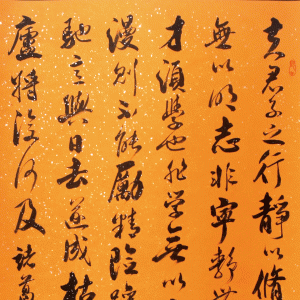 夫君子之行靜以脩
無以明志非寧靜無
才須學也非学無以
漫則不能勵精險躁
馳意與日去遂成枯
廬將復何及諸葛